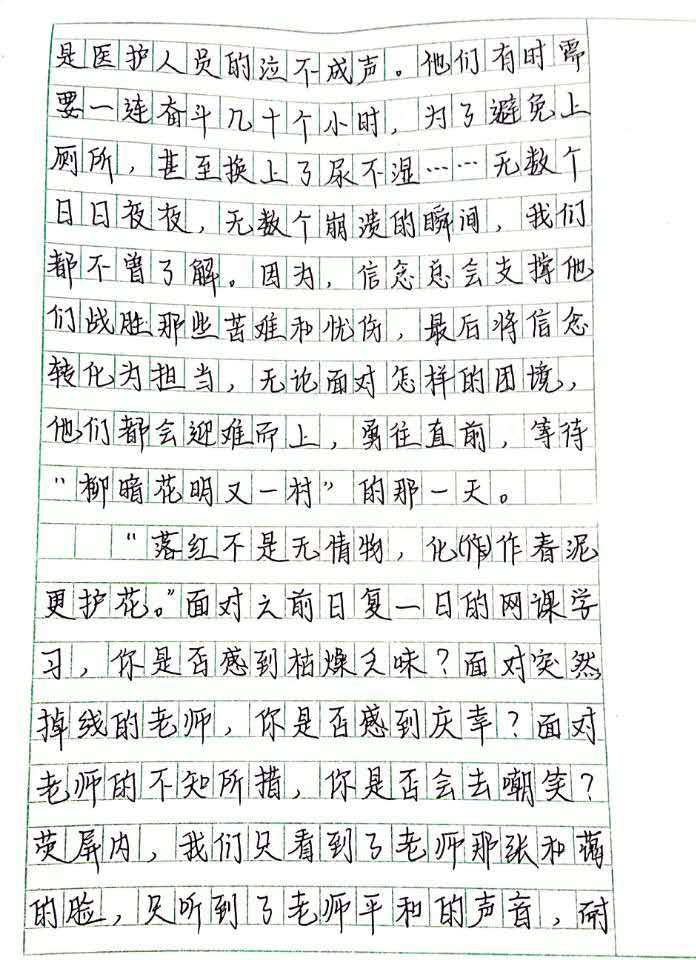 是医护人员的泣不成声。他们有时需
要一连奋斗几十个小时，为了避免上
厕所，甚至换上了尿不湿……无数个
日日夜夜，无数个崩溃的瞬间，我们
都不曾了解。因为，信念总会支撑他
们战胜那些苦难和忧伤，最后将信念
转化为担当，无论面对怎样的困境，
他们都会迎难而上，勇往直前，等待
“柳暗花明又一村”的那一天。
“落红不是无情物，化(作)作春泥
更护花。”面对之前日复一日的网课学
习，你是否感到枯燥乏味？面对突然
掉线的老师，你是否感到庆幸？面对
老师的不知所措，你是否会去嘲笑？
荧屏内，我们只看到了老师那张和蔼
的脸，只听到了老师平和的声音，耐